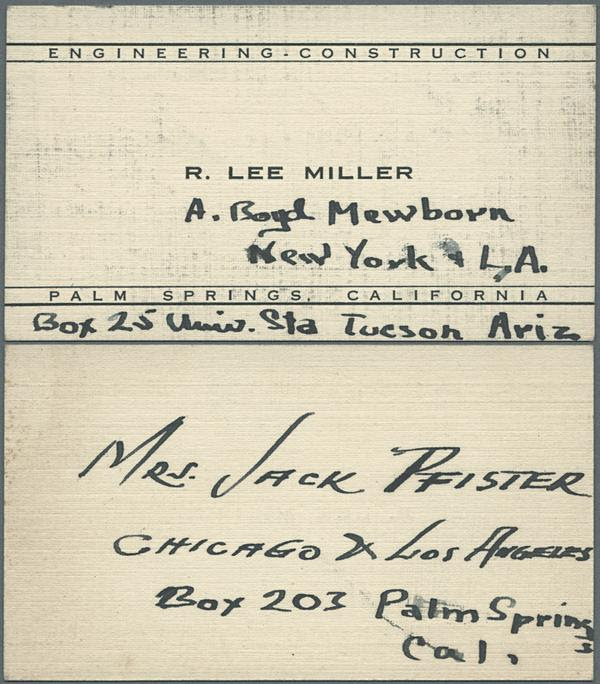 ENGINEERING-CONSTRUCTION
R. LEE MILLER
A. Boyd Mewborn
New York & L.A.
PALM SPRINGS, CALIFORNIA
Box 25 Univ. Sta Tucson Ariz
Mrs. JACK PFISTER
CHICAGO & LOS ANGELES
Box 203 Palm Springs
Cal.